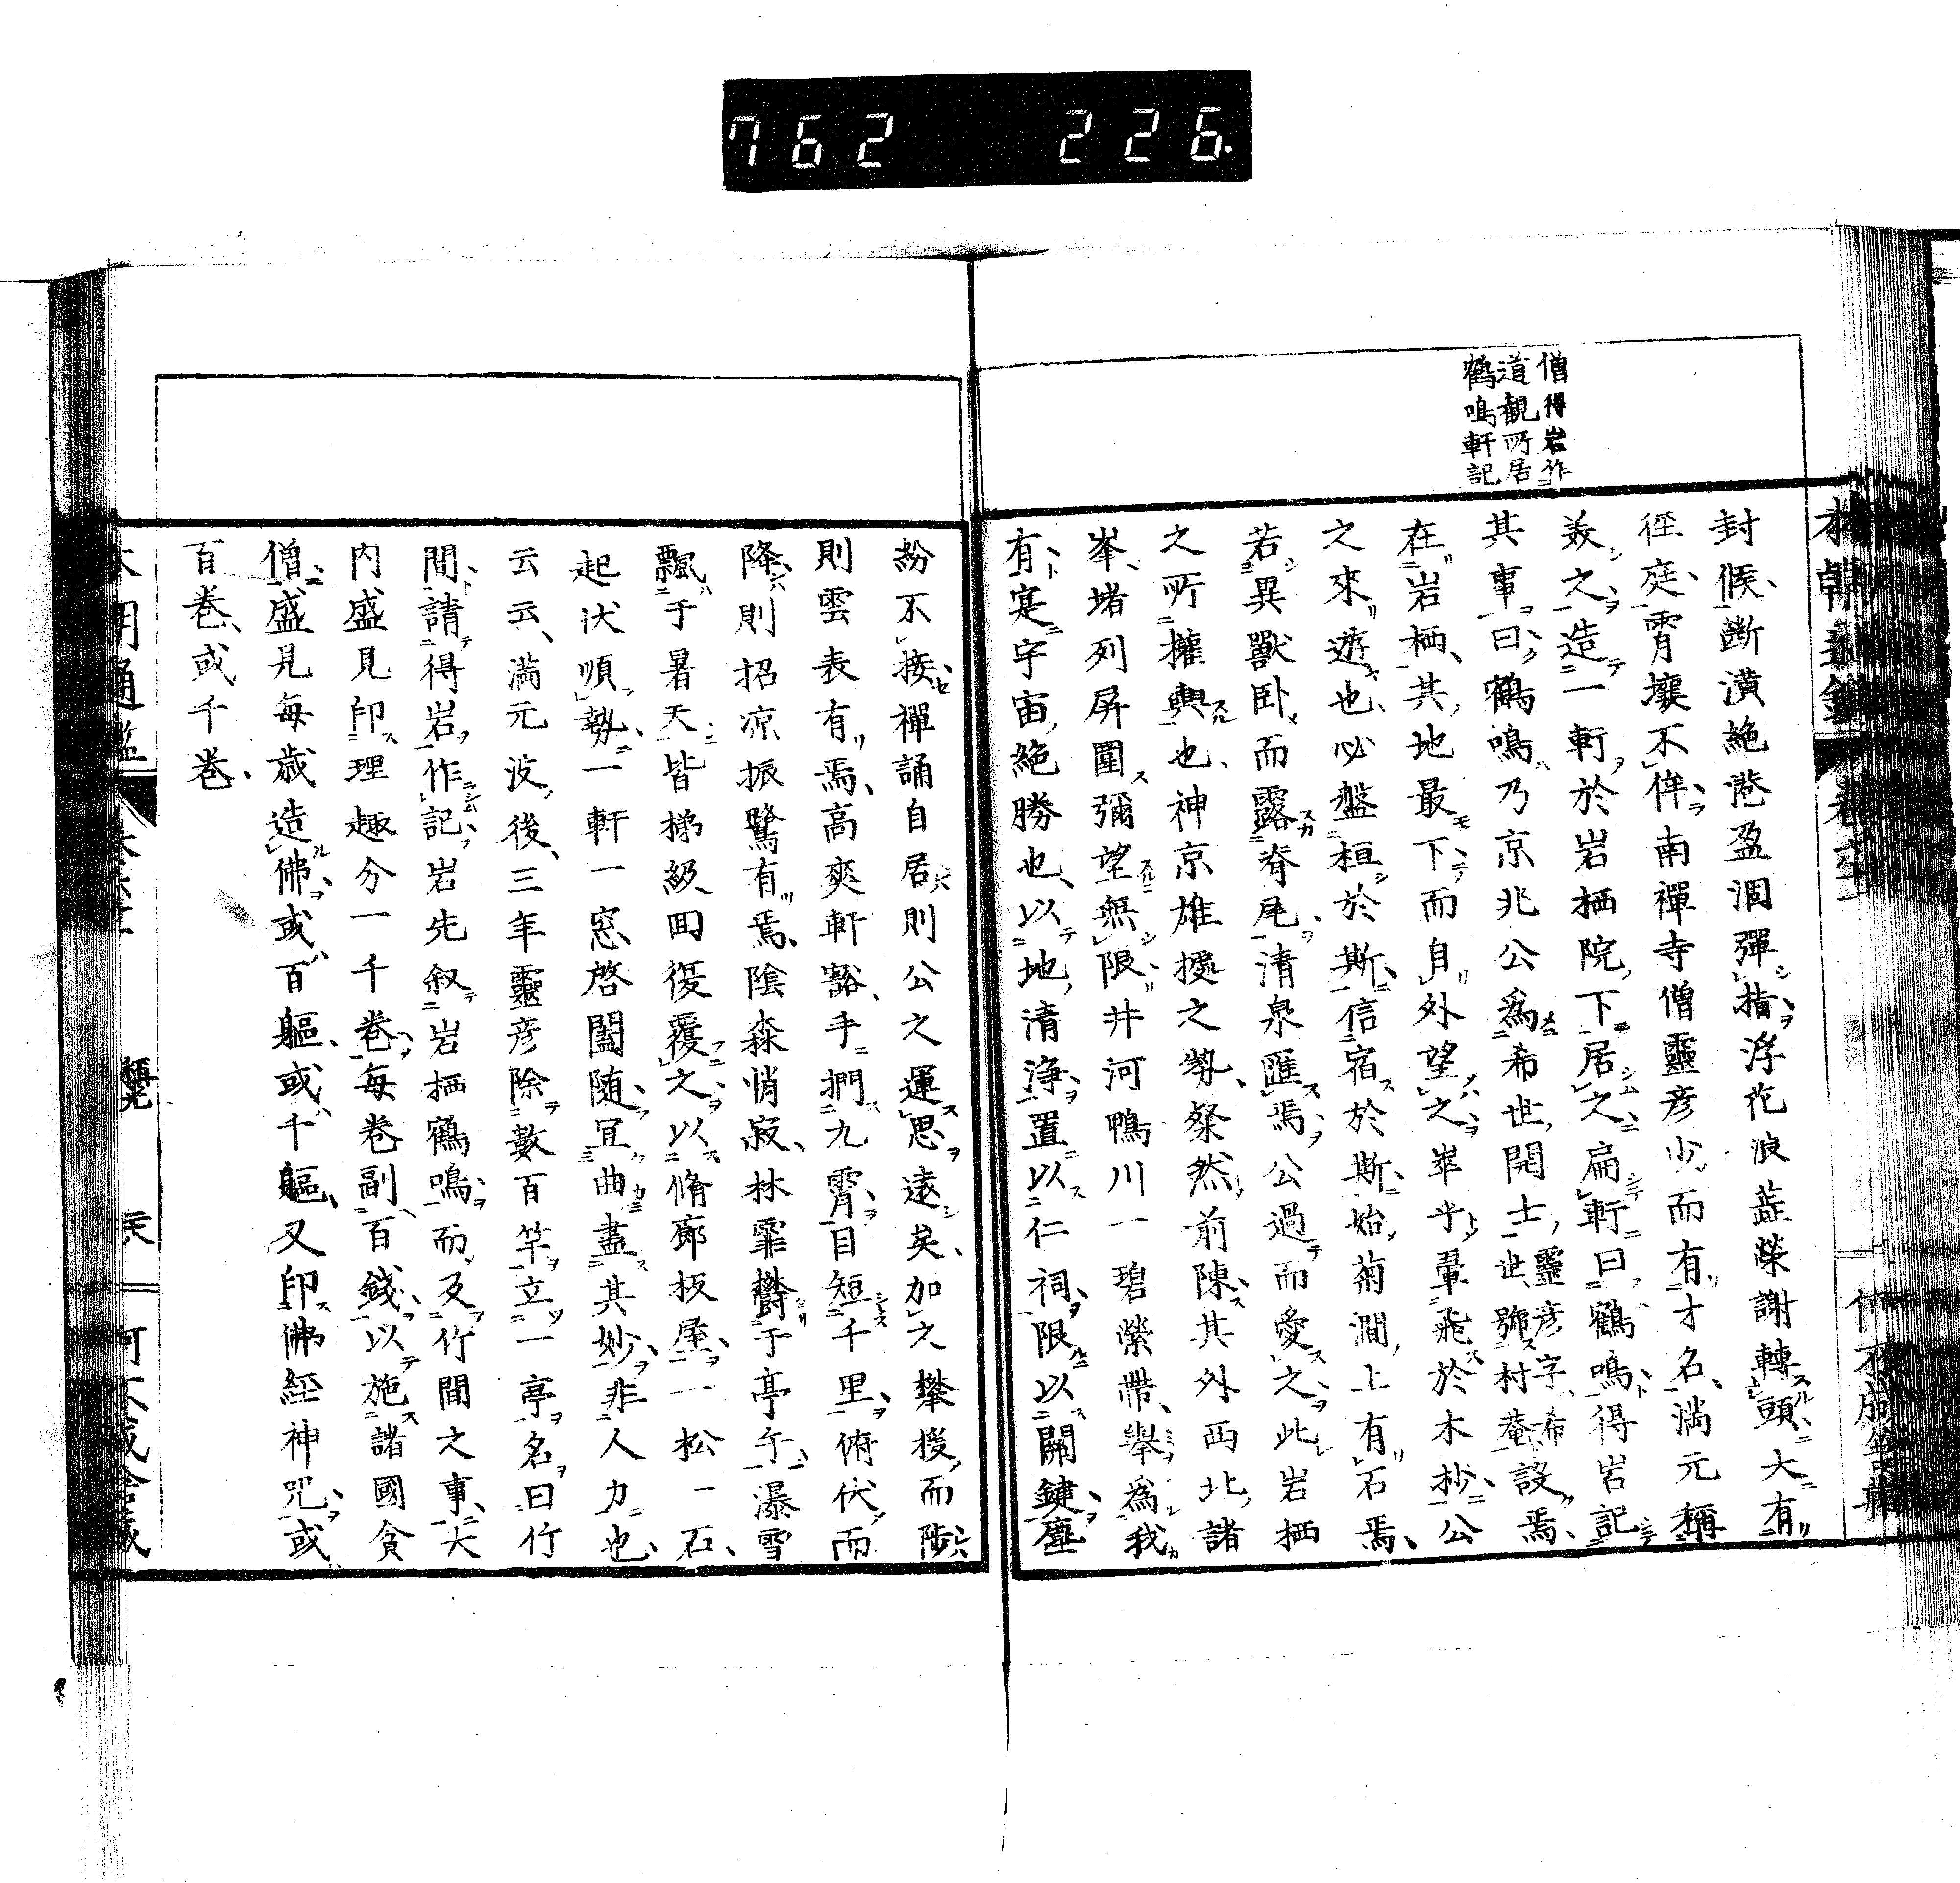 762 226.
僧得岩作
道觀所居
鶴鳴軒記
封候、斷潢絶港盈涸彈指浮花浪蕋榮謝轉頭、大有
徑庭、霄壤不侔、南禪寺僧靈彦少而有才名、満元稱
羨之、造一軒於岩栖院下居之、扁軒曰鶴鳴、得岩記
其事曰、鶴鳴乃京兆公為希世開士、靈彦字希世、號村菴、設焉、
在岩栖、其地最下、而自外望之、崒乎翬飛於木杪、公
之來遊也、必盤桓於斯、信宿於斯、始菊澗上有石焉、
若異獸卧而露脊尾、清泉匯焉、公過而愛之、此岩栖
之所權輿也、神京雄據之勢、粲然前陳、其外西北諸
峯、堵列屏圍、彌望無限、井河鴨川一碧縈帶、舉為我
有、寔宇宙絶勝也、以地清浄、置以仁祠、限以關鍵、塵
紛不接、禪誦自居、則公之運思遠矣、加之攀援而陟、
則雲表有焉、高爽軒豁、手捫九霄、目短千里、俯伏而
降、則招凉振鷺有焉、陰森悄寂、林霏欝于亭午、瀑雪
飄于暑天、皆梯級回復、覆之以脩廊板屋、一松一石、
起伏順勢、一軒一窓、啓闔随宜、曲盡其妙、非人力也、
云云、満元没後、三年靈彦除數百竿、立一亭、名曰竹
間、請得岩作記、岩先叙岩栖鶴鳴、而及竹間之事、大
内盛見印理趣分一千巻、毎巻副百錢、以施諸國貪
僧、盛見毎歳造佛、或百軀、或千軀、又印佛經神咒、或
百巻、或千巻、